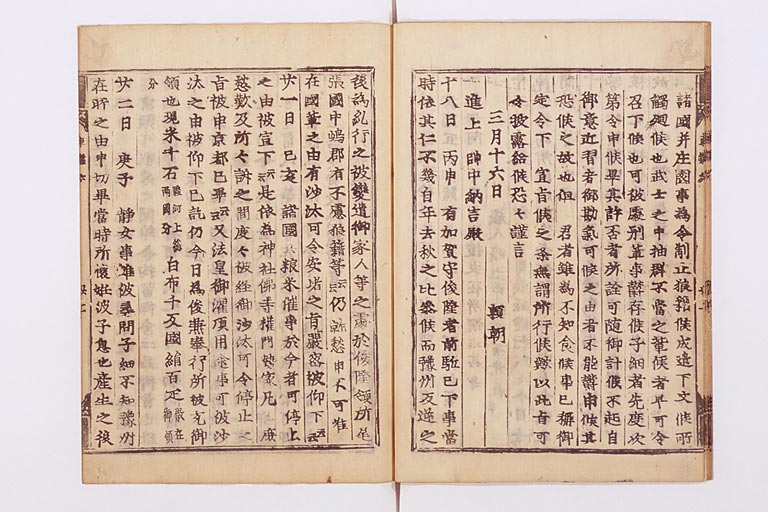 諸國并庄園事為令制止狼藉候成遣下文候所
觸廻候也武士之中抽群不當之輩候者早可令
召下候也可被處別罪事辭存候子細者先度次
第令申候畢其許否者所詮可随御計候不起自
御意近習者御勘氣可候之由者不能謝申候其
恐候之故也但　君者雖為不知食候事已稱御
定令下　宜旨候之条無謂所行候歟以此旨可
令披露給候恐々謹言
三月十六日　　　頼朝
進上　帥中納言殿
十八日　丙申　有加賀守俊隆者前駈已下事當
時依其仁不幾自年去秋之比参候而豫州反逆之
後為乱行之被變遣御家人等之處於俊隆領所尾
張國中嶋郡有不慮狼籍等云云仍就愁申不可准
在國輩之由有沙汰可令安堵之旨嚴密被仰下云云
廿一日　己亥　諸國兵粮米催事於今者可停止
之由被宣下云云是依為神社佛寺權門勢家凡庶
愁歎及所々訴之間度々被經御沙汰可令停止之
旨被申京都已畢云云又法皇御灌頂用途事可被沙
汰之由被仰下已訖仍今日為俊兼奉行所被充御
領也現米千石駿河上総両國分白布千反國絹百疋散在御領
分
廿二日　庚子　静女事雖被尋問子細不知豫州
在所之由申切畢當時所懐妊彼子息也産生之後